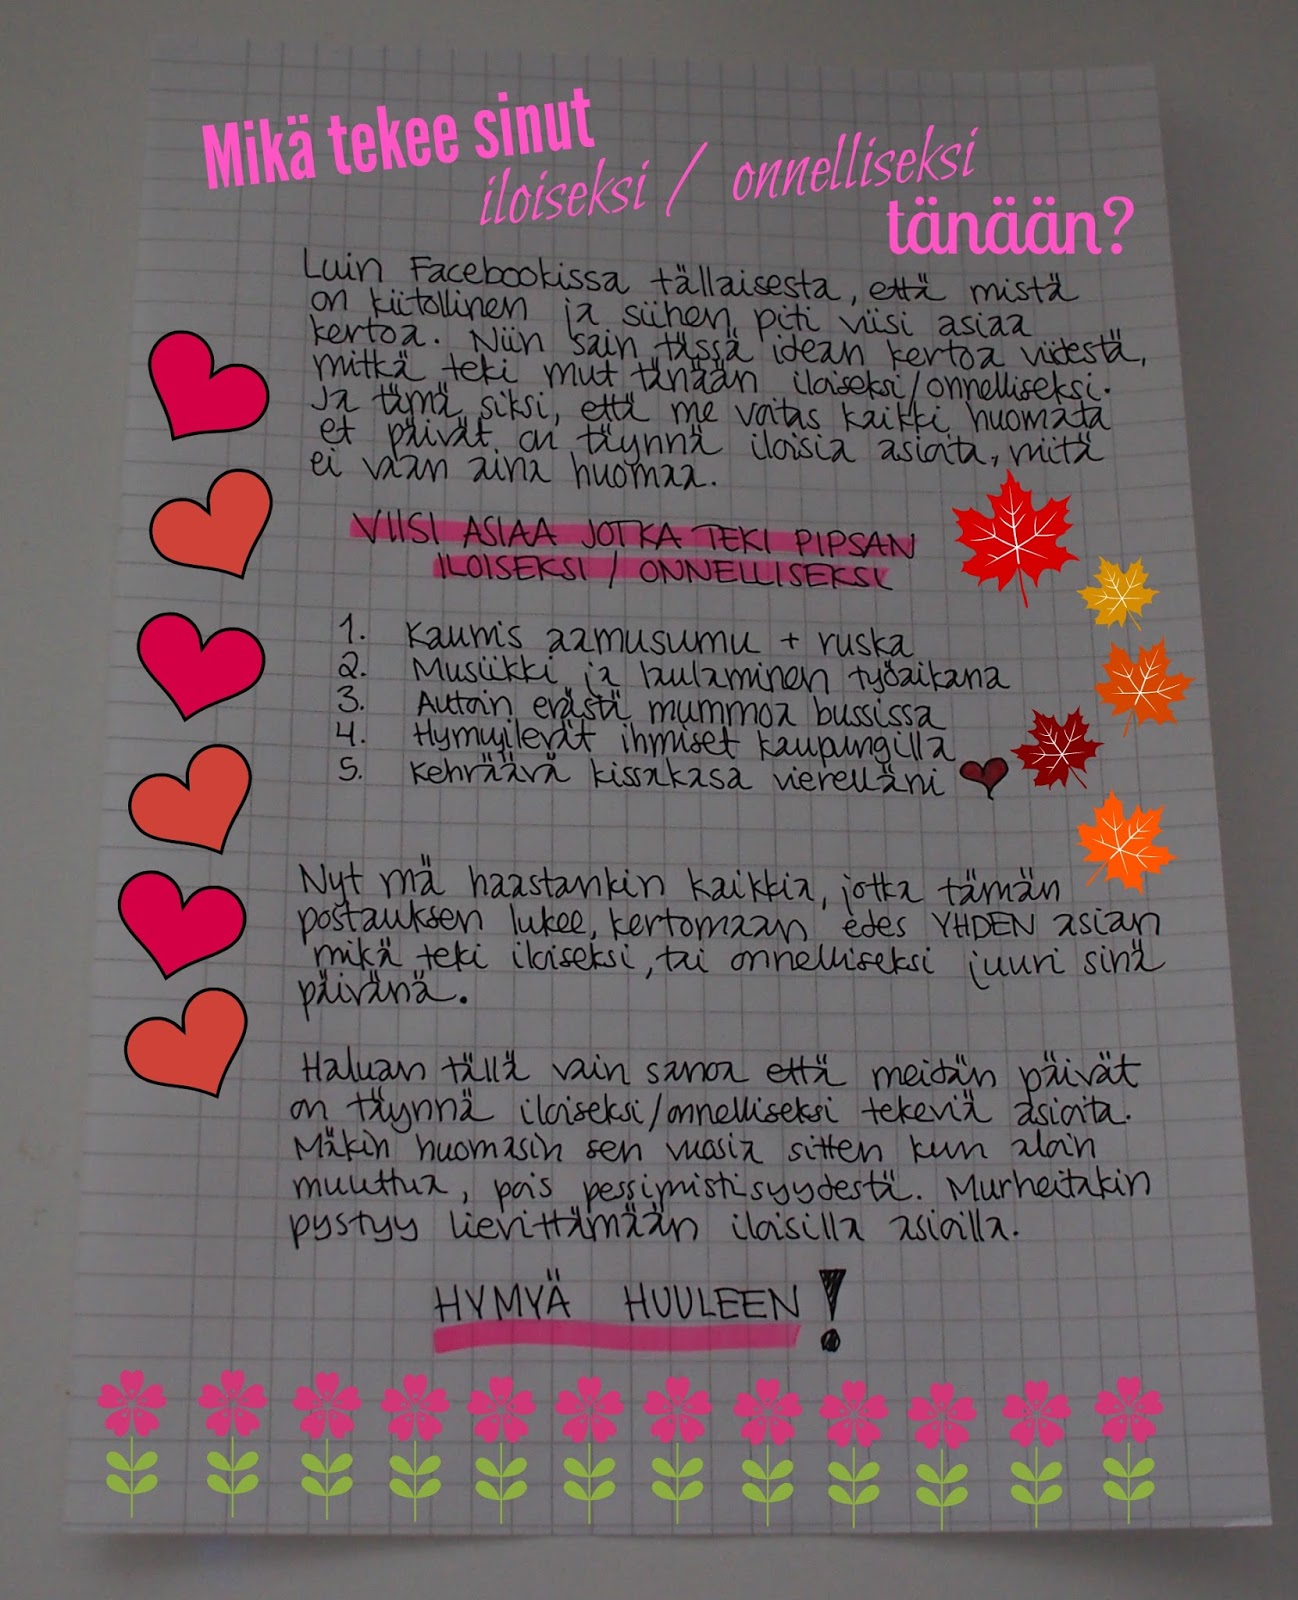 Mikä tekee sinut
iloiseksi / onnelliseksi
tänään?
Luin Facebookissa tällaisesta, että mistä
on kiitollinen ja siihen piti viisi asiaa
kertoa. Niin sain tässä idean kertoa viidestä,
mitkä teki mut tänään iloiseksi/onnelliseksi.
Ja tämä siksi, että me voitas kaikki huomata
et päivät on täynnä iloisia asioita, mitä
ei vaan aina huomaa.
VIISI ASIAA JOTKA TEKI PIPSAN
ILOISEKSI / ONNELLISEKSI
1. Kaunis aamusumu + ruska
2. Musiikki ja laulaminen työaikana
3. Autoin erästä mummoa bussissa
4. Hymyilevät ihmiset kaupungilla
5. Kehräävä kissakasa vierelläni
Nyt mä haastankin kaikkia, jotka tämän
postauksen lukee, kertomaan edes YHDEN asian
mikä teki iloiseksi, tai onnelliseksi juuri sinä
päivänä.
Haluan tällä vain sanoa että meidän päivät
on täynnä iloiseksi/onnelliseksi tekeviä asioita.
Mäkin huomasin sen vuosia sitten kun aloin
muuttua, pois pessimistisyydestä. Murheitakin
pystyy lievittämään iloisilla asioilla.
HYMYÄ HUULEEN!